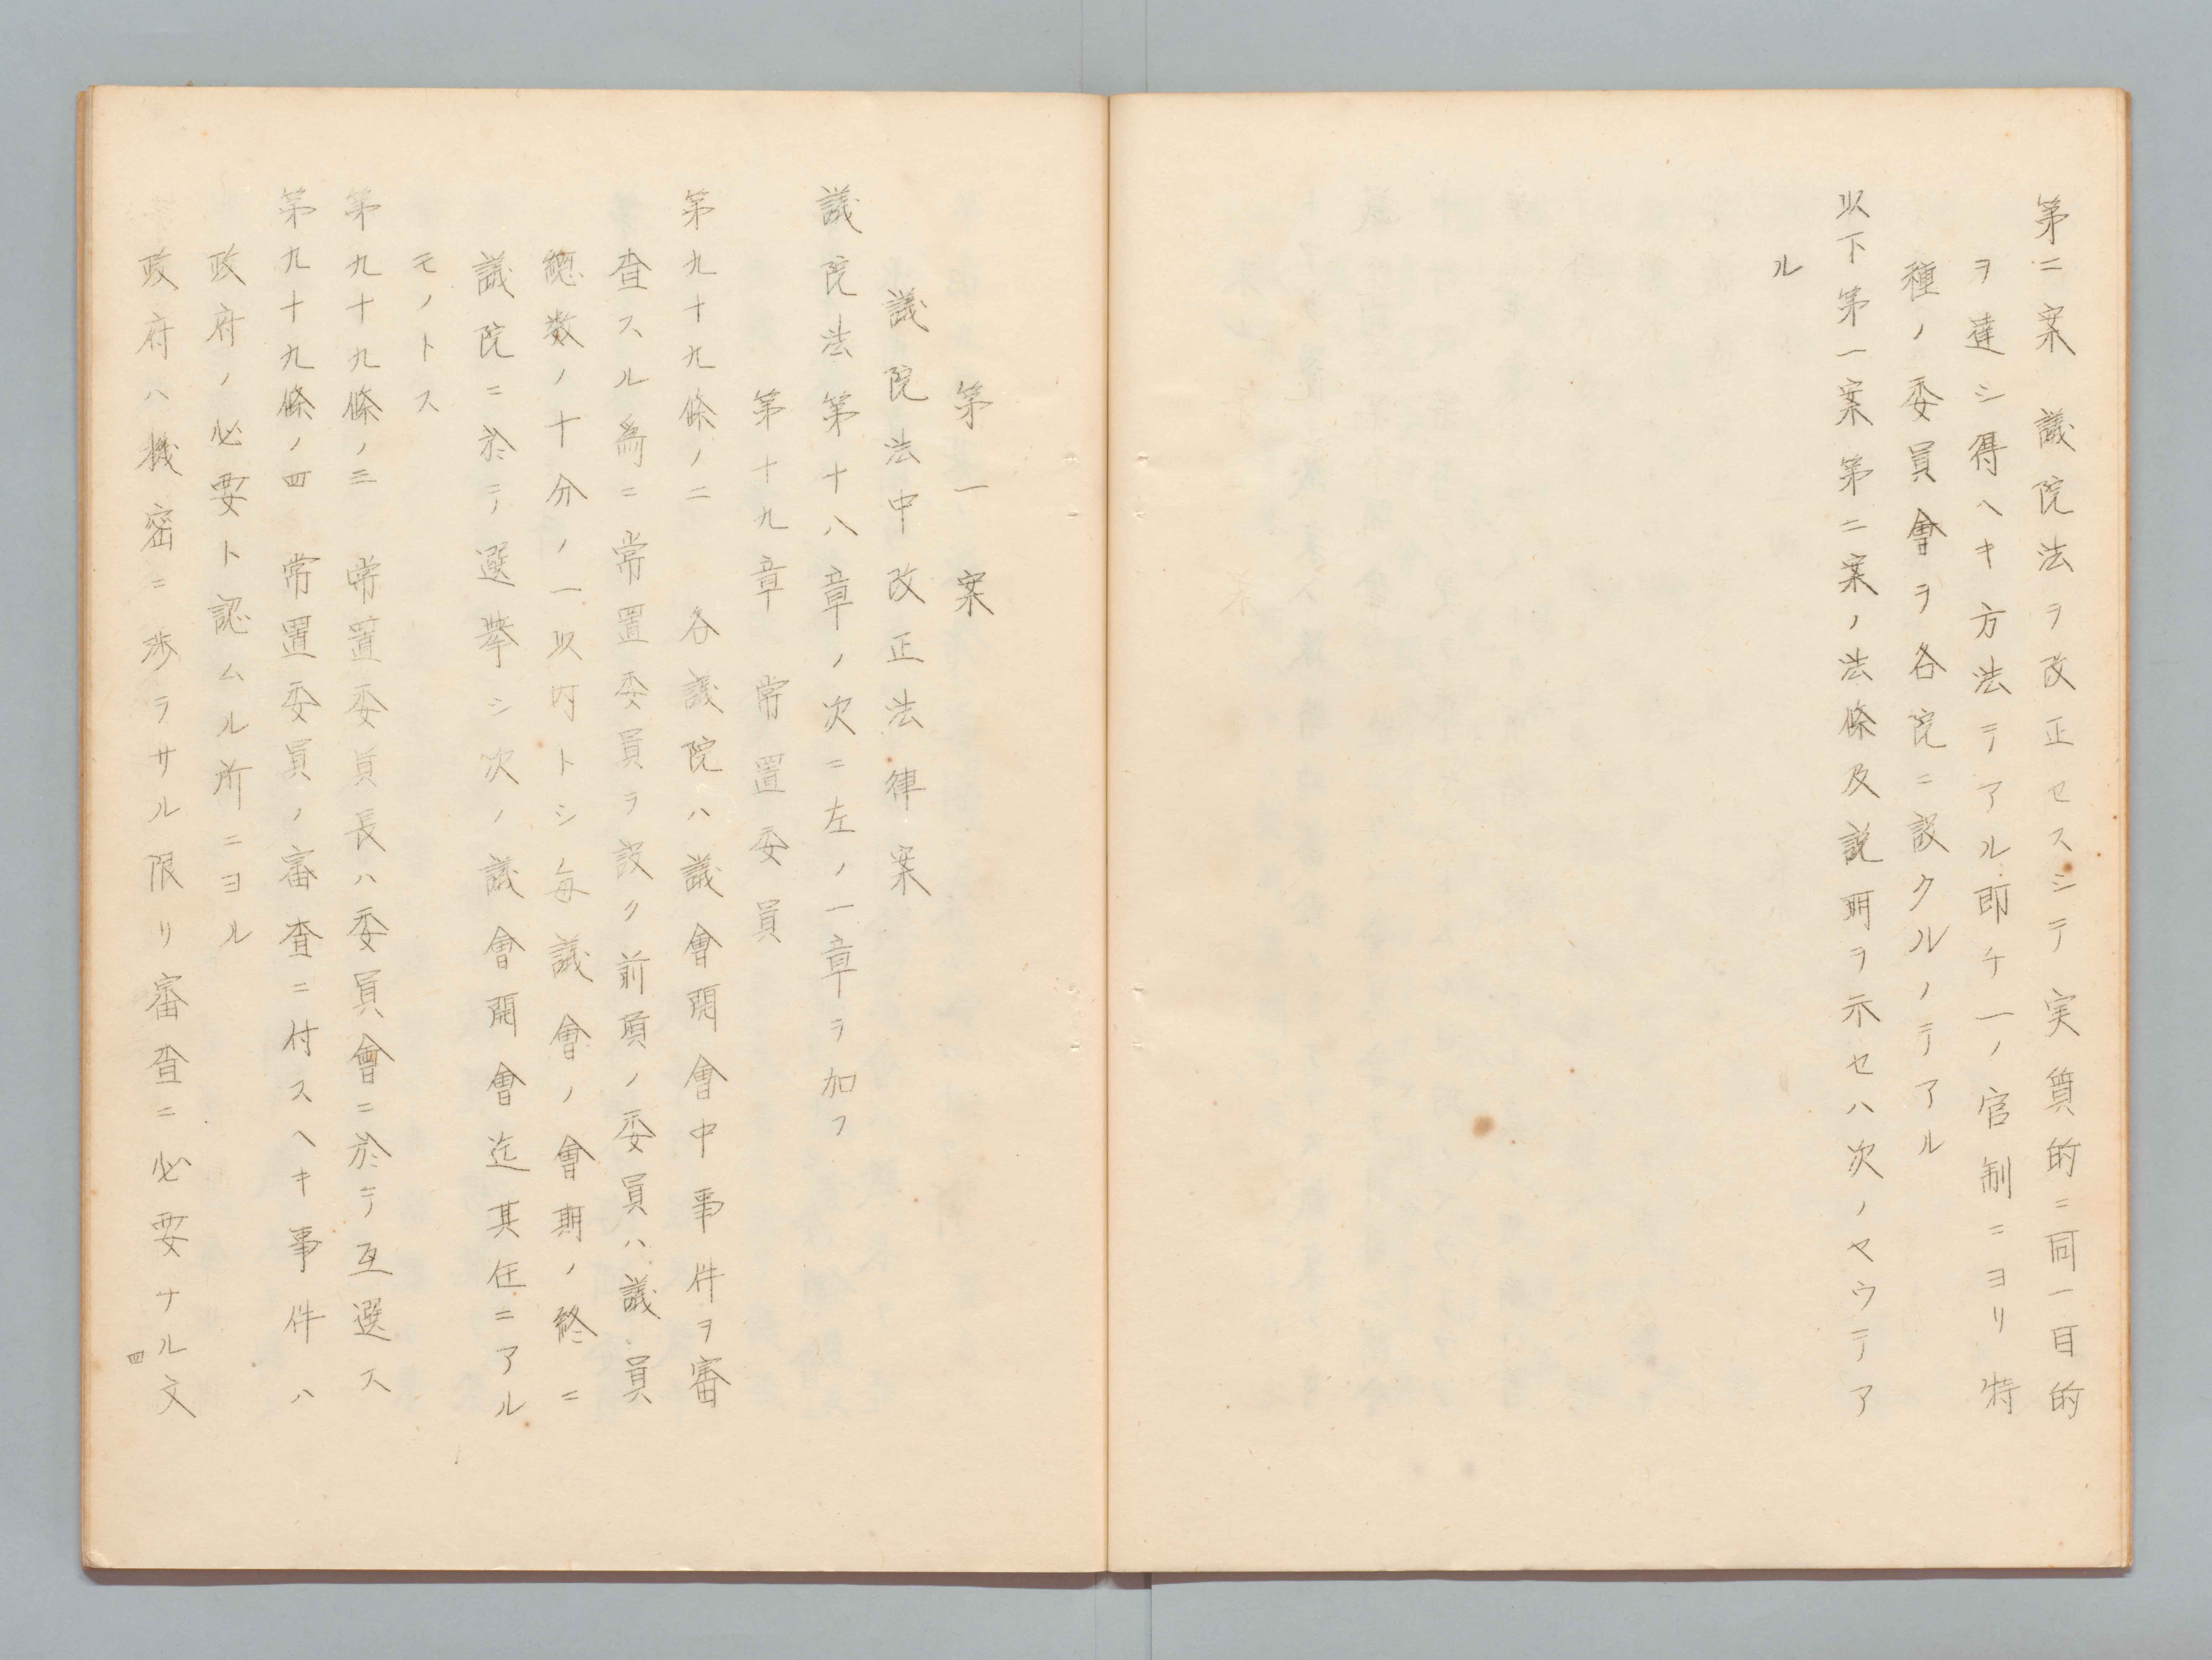 第二案　議院法ヲ改正セスシテ実質的ニ同一目的
ヲ達シ得ヘキ方法テアル即ケ一ノ官制ニヨリ特
種ノ委員會ヲ各院ニ設クルノテアル
以下第一案第二案ノ法條及説明ヲ示セハ次ノヤウテア
ル
第一案
議院法中改正法律案
議院法第十八章ノ次ニ左ノ一章ヲ加フ
第十九章　常置委員
第九十九條ノ二　各議院ハ議會閉會中事件ヲ審
査スル為ニ常置委員ヲ設ク前項ノ委員ハ議員
總数ノ十分ノ一以内トシ毎議會ノ會期ノ終ニ
議院ニ於テ選挙シ次ノ議會開會迄其任ニアル
モノトス
第九十九條ノ三　常置委員長ハ委員會ニ於テ互選ス
第九十九條ノ四　常置委員ノ審査ニ付スヘキ事件ハ
政府ノ必要ト認ムル所ニヨル
政府ハ機密ニ渉ラサル限リ審査ニ必要ナル文
四